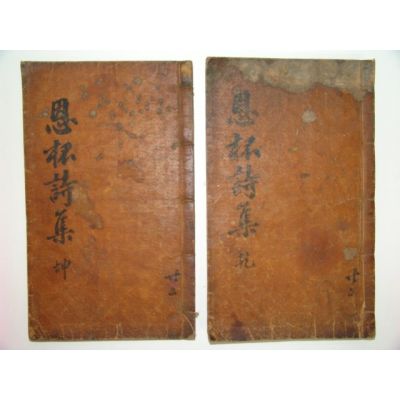 恩杯詩集 坤
共二
恩杯詩集 乾
共二